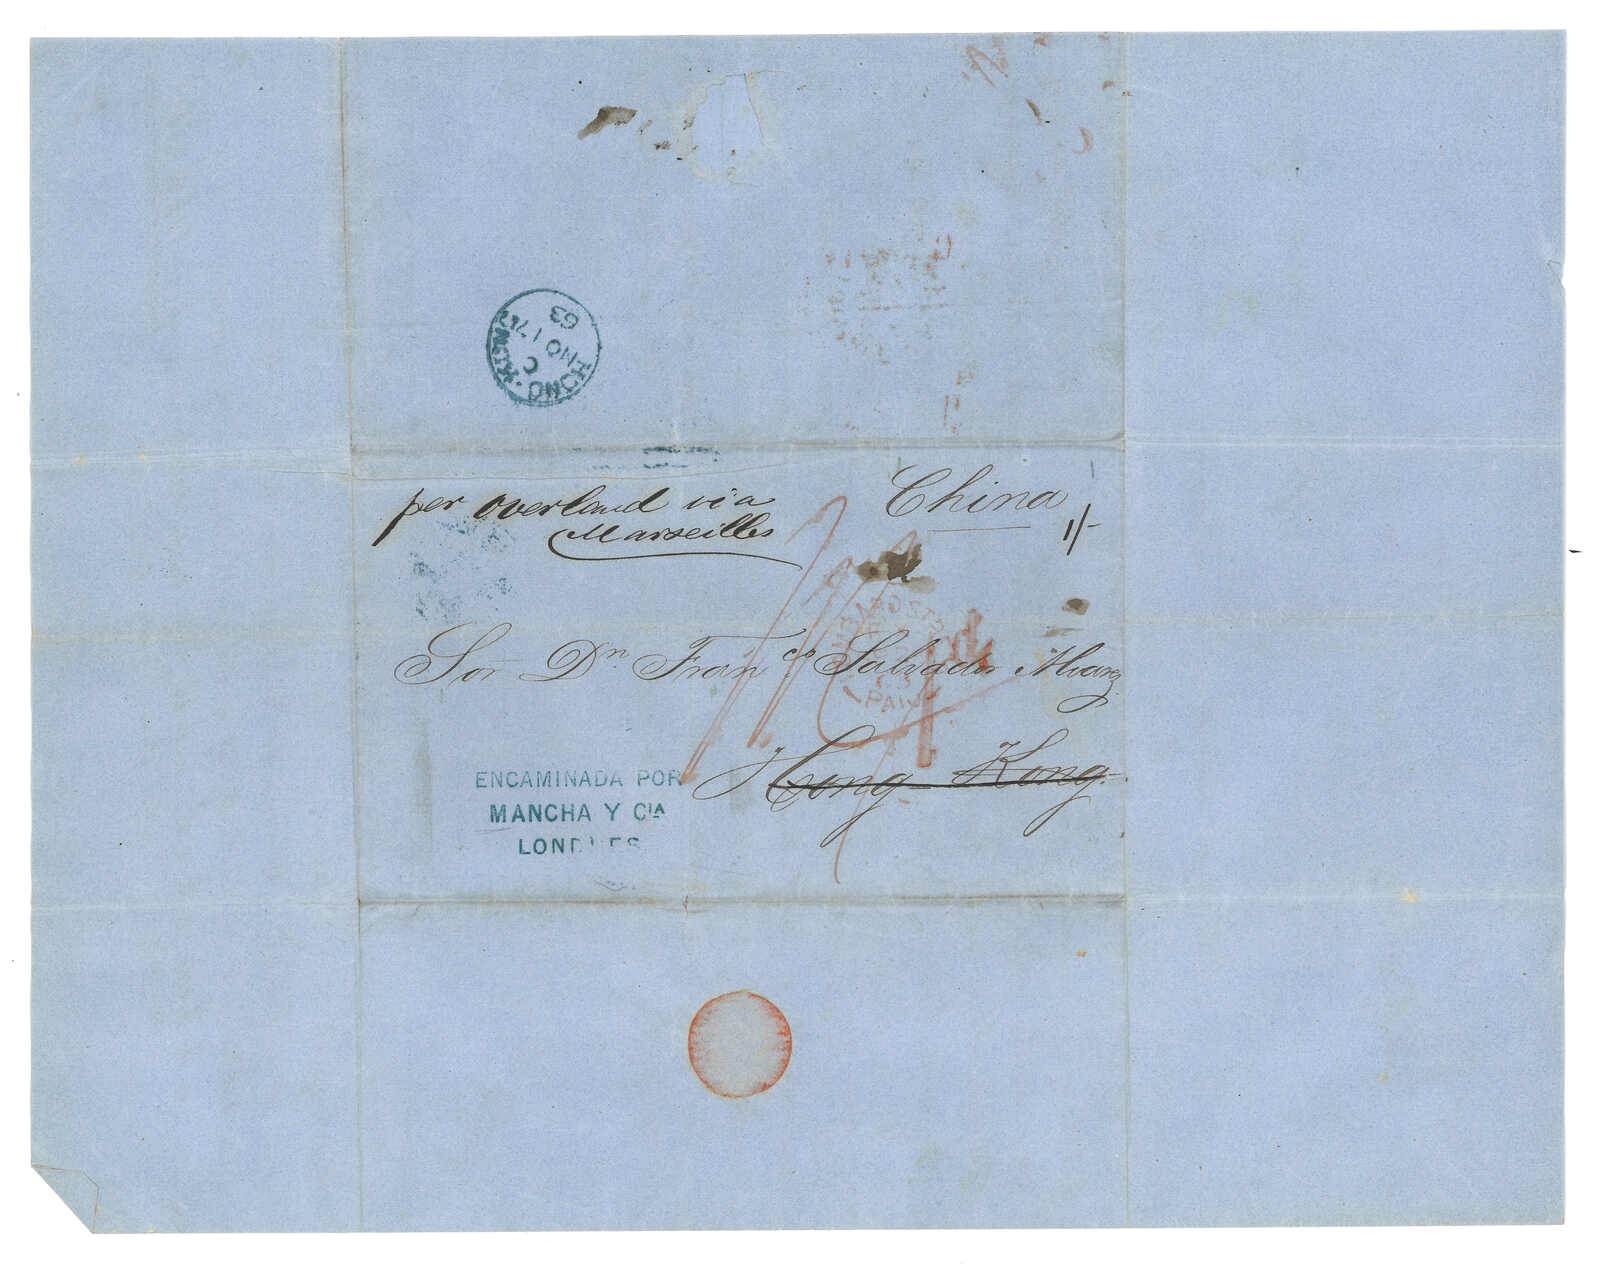 HONG-KONG
C
NO 17
63
per overland via
Marseilles
China
1/-
Sor Dn Franco Salvador Alvarez
Hong Kong.
PAID
1d
ENCAMINADA POR
MANCHA Y CIA
LONDRES